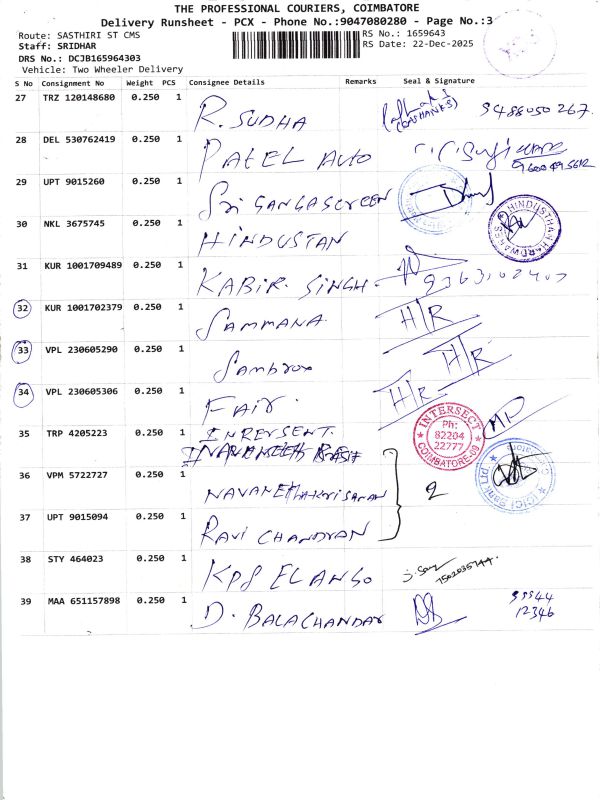 THE PROFESSIONAL COURIERS, COIMBATORE
Delivery Runsheet - PCX - Phone No.:9047080280 - Page No.:3
Route: SASTHIRI ST CMS
RS No.: 1659643
Staff: SRIDHAR
RS Date: 22-Dec-2025
DRS No.: DCJB165964303
Vehicle: Two Wheeler Delivery
S No Consignment No Weight PCS Consignee Details Remarks Seal & Signature
27 TRZ 120148680 0.250 1 R. SUDHA 9488050267.
28 DEL 530762419 0.250 1 PATEL AUTO
29 UPT 9015260 0.250 1 Sri GANGA SCREEN
30 NKL 3675745 0.250 1 HINDUSTAN HINDUSTHAN HARDWARES
31 KUR 1001709489 0.250 1 KABIR. SINGH.
32 KUR 1001702379 0.250 1 SAMMANA H/R
33 VPL 230605290 0.250 1 Sambrox H/R
34 VPL 230605306 0.250 1 FAIR. H/R
35 TRP 4205223 0.250 1 INRERSENT.
INTERSECT
Ph:
82204
22777
COIMBATORE-09
36 VPM 5722727 0.250 1 2
37 UPT 9015094 0.250 1 RAVI CHANDRAN
38 STY 464023 0.250 1 KPS ELANGO
39 MAA 651157898 0.250 1 D. BALACHANDAR 99944
12346